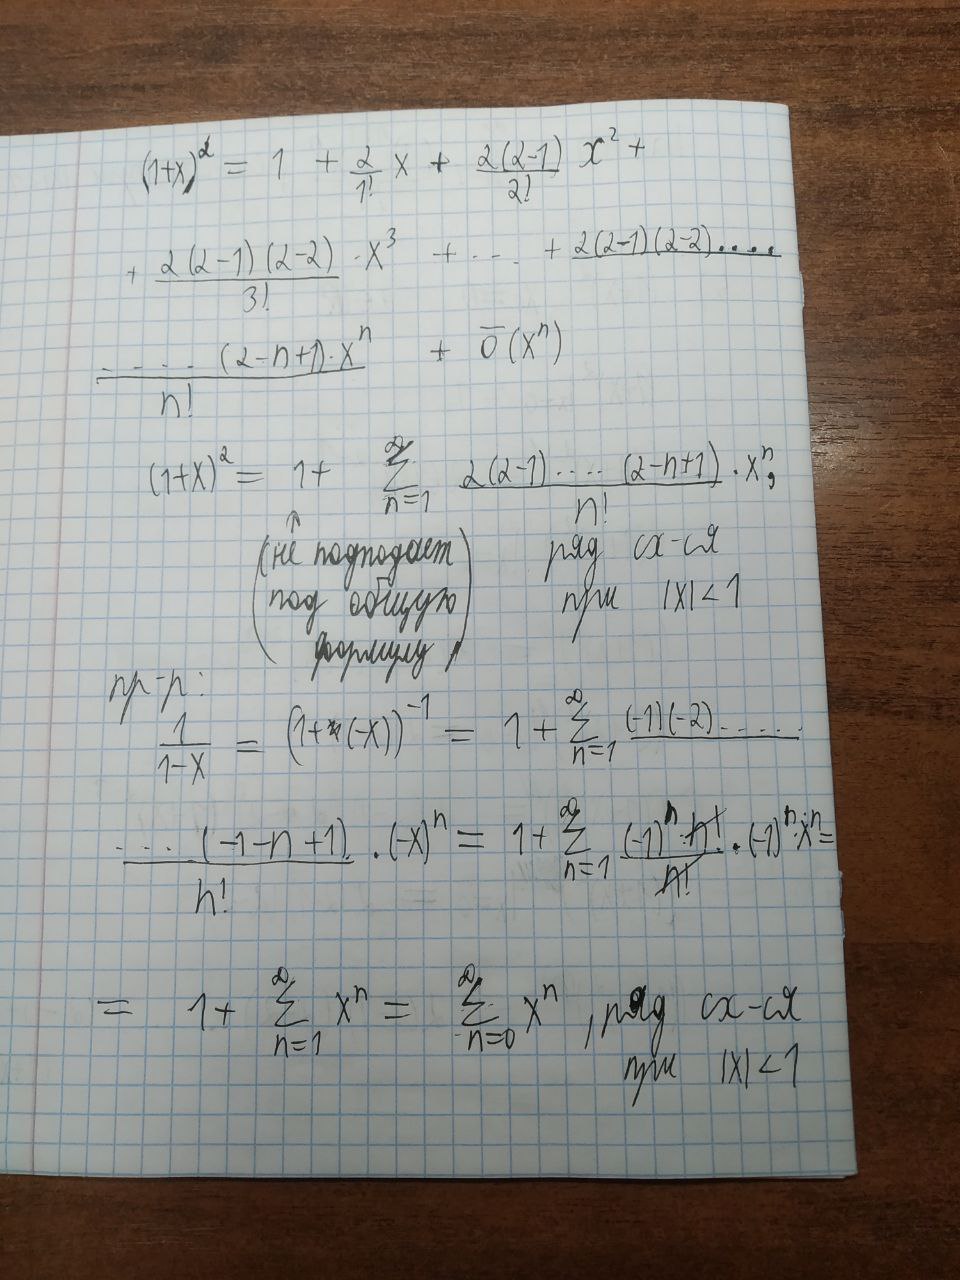 (1+x)^2 = 1 + 2/1! x + 2(2-1)/2! x^2 +
+ 2(2-1)(2-2)/3! · x^3 + ... + 2(2-1)(2-2)....
.... (2-n+1)·x^n / n! + o̅(x^n)
(1+x)^2 = 1 + ∑_{n=1}^{∞} 2(2-1)....(2-n+1)/n! · x^n,
(не подподает
под общую
формулу)
ряд сх-ся
при |x| < 1
пр-р:
1/(1-x) = (1+(-x))^{-1} = 1 + ∑_{n=1}^{∞} (-1)(-2).....
.... (-1-n+1)/n! · (-x)^n = 1 + ∑_{n=1}^{∞} (-1)^n·n!/n! · (-1)^n·x^n =
= 1 + ∑_{n=1}^{∞} x^n = ∑_{n=0}^{∞} x^n, ряд сх-ся
при |x| < 1